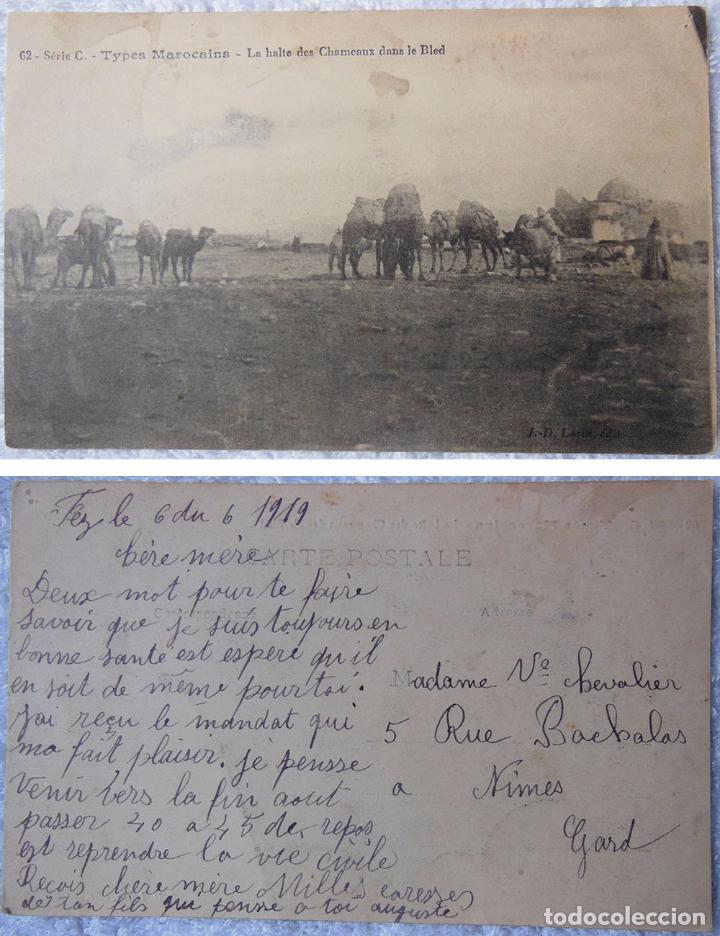 62 - Série C. - Types Marocains - La halte des Chameaux dans le Bled
J.-D. Lorin, édit
Fez le 6 du 6 1919
CARTE POSTALE
Cère mère
Correspondance
Adresse
Deux mot pour te faire
savoir que je suis toujours en
bonne santé est espère qu'il
en soit de même pour toi.
J'ai reçu le mandat qui
ma fait plaisir. je pensse
venir vers la fin aout
passer 40 a 45 de repos
est reprendre la vie civile
Reçois chère mère Milles caresses
de ton fils qui pense a toi auguste
Madame Ve Chevalier
5 Rue Bachalas
a Nîmes
Gard
todocoleccion
todocoleccion.net